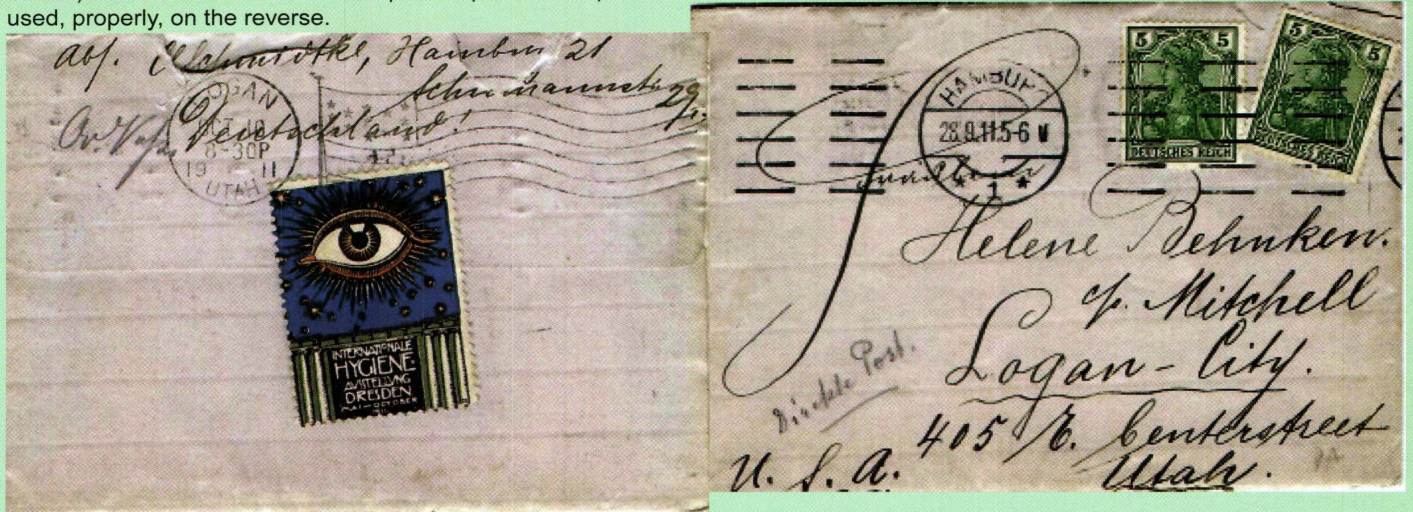 used, properly, on the reverse.
Abs. Schmidtke, Hamburg 21
Schumannstr. 29
Deutschland!
LOGAN
OCT 10
8-30P
19 11
UTAH
INTERNATIONALE
HYGIENE
AUSSTELLUNG
DRESDEN
MAI-OCTOBER
HAMBURG
28.9.11.5-6 N
* 1 *
5 5
DEUTSCHES REICH
5 5
DEUTSCHES REICH
Helene Behnken.
c/o. Mitchell
Logan - City.
405 E. Centerstreet
Utah.
U. S. A.
Direkte Post.